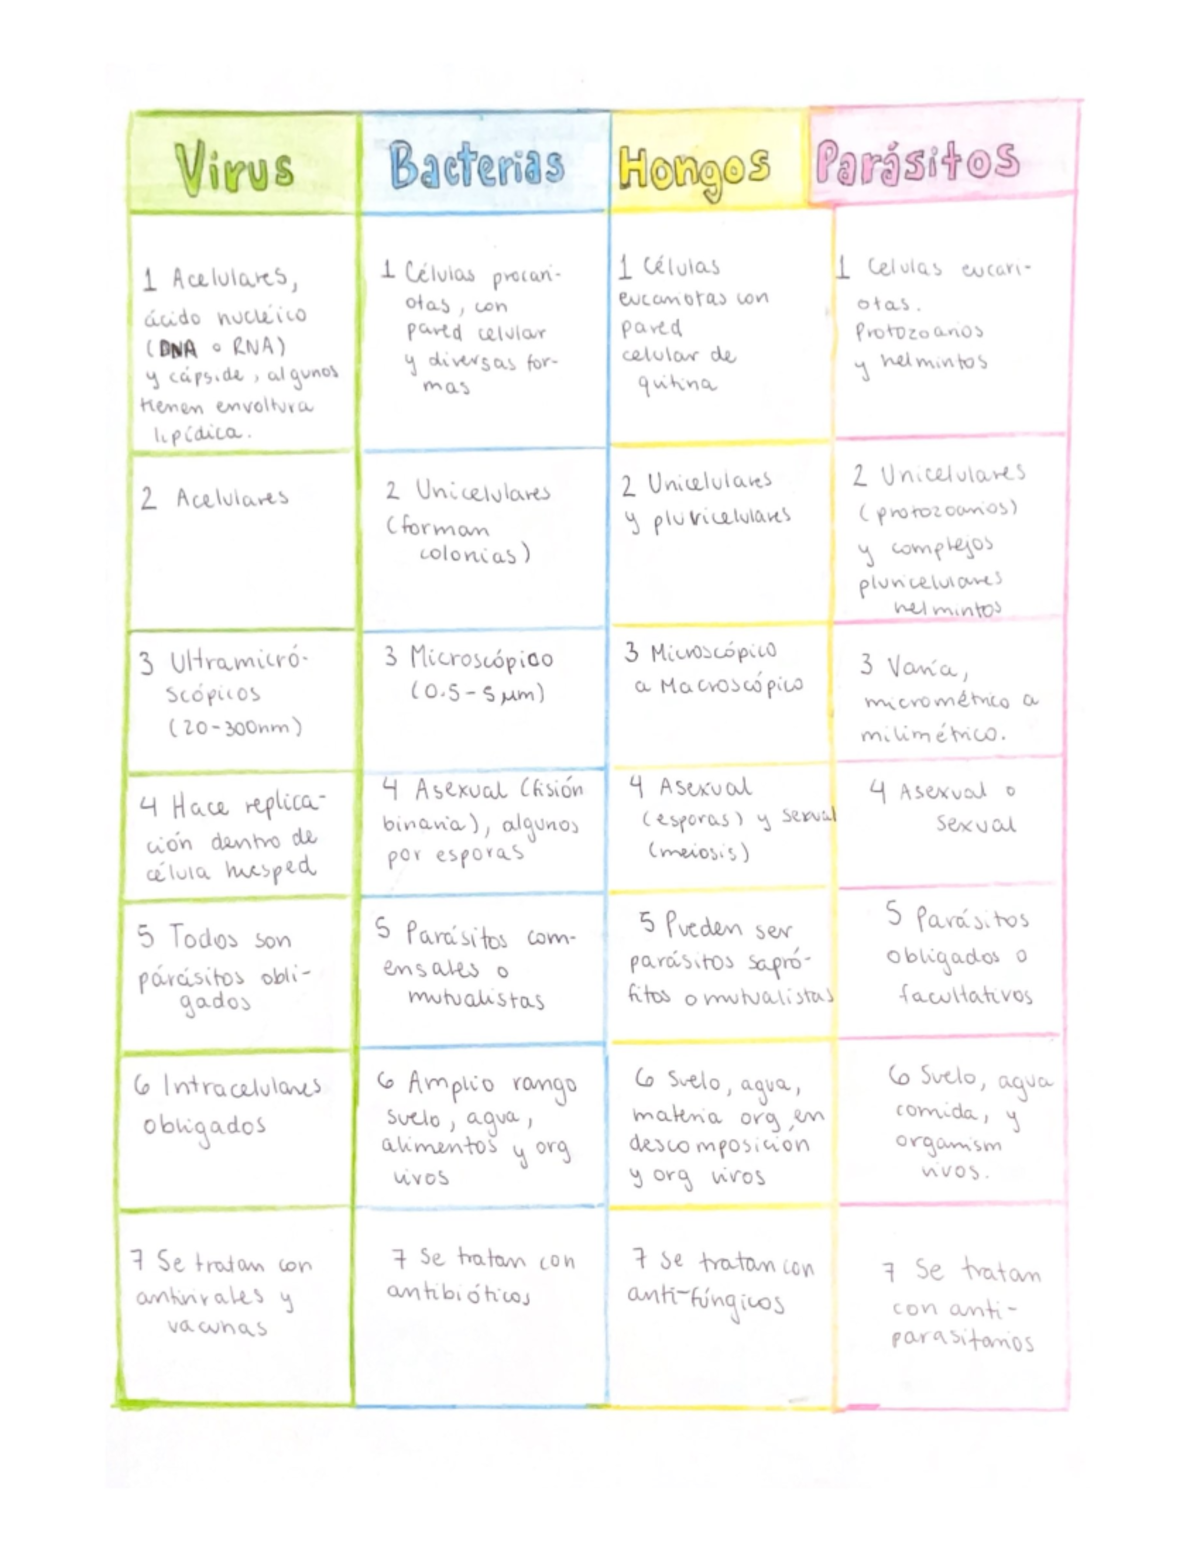 Virus
Bacterias
Hongos
Parásitos
1 Acelulares,
ácido nucléico
(DNA o RNA)
y cápside, algunos
tienen envoltura
lipídica.
1 Células procari-
otas, con
pared celular
y diversas for-
mas
1 Células
eucariotas con
pared
celular de
quitina
1 Celulas eucari-
otas.
Protozoarios
y helmintos
2 Acelulares
2 Unicelulares
(forman
colonias)
2 Unicelulares
y pluricelulares
2 Unicelulares
(protozoarios)
y complejos
pluricelulares
helmintos
3 Ultramicró-
scópicos
(20-300nm)
3 Microscópico
(0.5-5µm)
3 Microscópico
a Macroscópico
3 Varía,
micrométrico a
milimétrico.
4 Hace replica-
ción dentro de
célula huesped
4 Asexual (fisión
binaria), algunos
por esporas
4 Asexual
(esporas) y sexual
(meiosis)
4 Asexual o
sexual
5 Todos son
párásitos obli-
gados
5 Parásitos com-
ensales o
mutualistas
5 Pueden ser
parásitos sapró-
fitos o mutualistas
5 Parásitos
obligados o
facultativos
6 Intracelulares
obligados
6 Amplio rango
suelo, agua,
alimentos y org
vivos
6 Suelo, agua,
materia org, en
descomposicion
y org vivos
6 Suelo, agua
comida, y
organism
vivos.
7 Se tratan con
antivirales y
vacunas
7 Se tratan con
antibióticos
7 Se tratan con
anti-fúngicos
7 Se tratan
con anti-
parasitarios